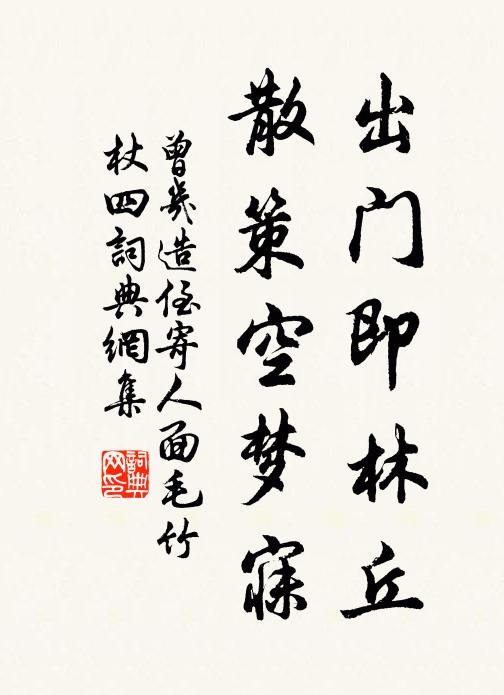 出门即林丘
散策空梦寐
曾几造侄寄人面毛竹
杖四詞典網集
詞典网印